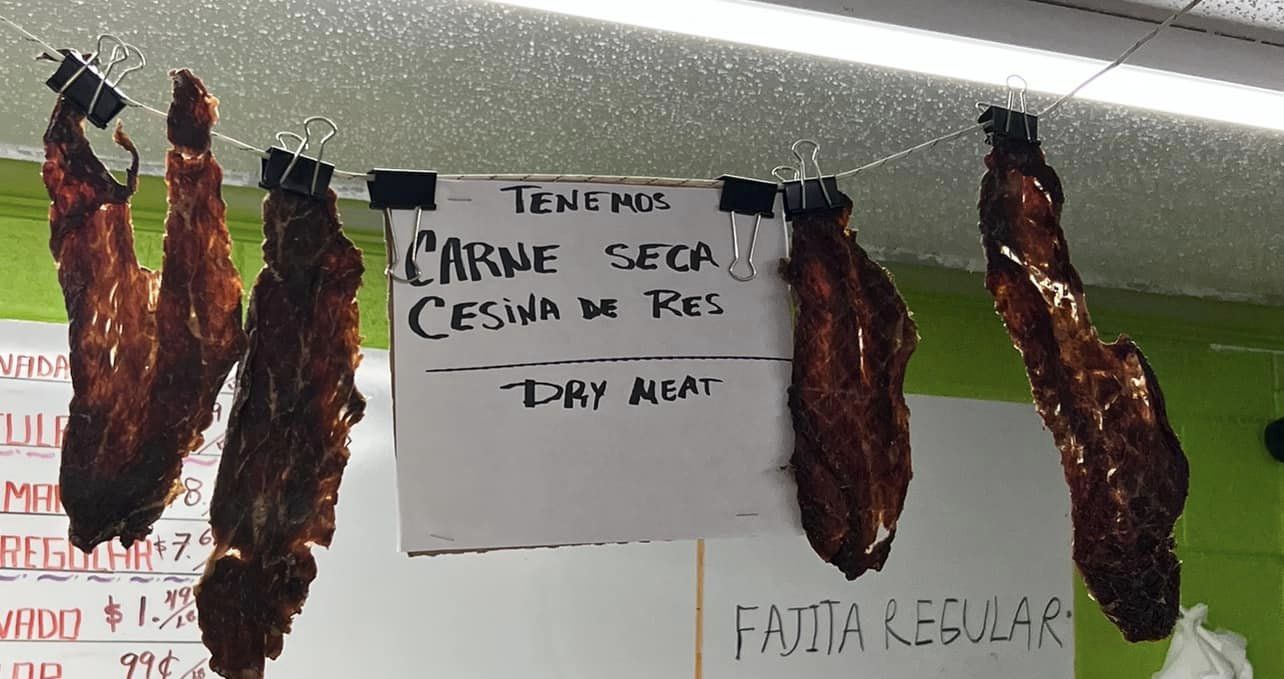 TENEMOS
CARNE SECA
CESINA DE RES
DRY MEAT
REGULAR $7.
VADO $1.49
99¢
FAJITA REGULAR